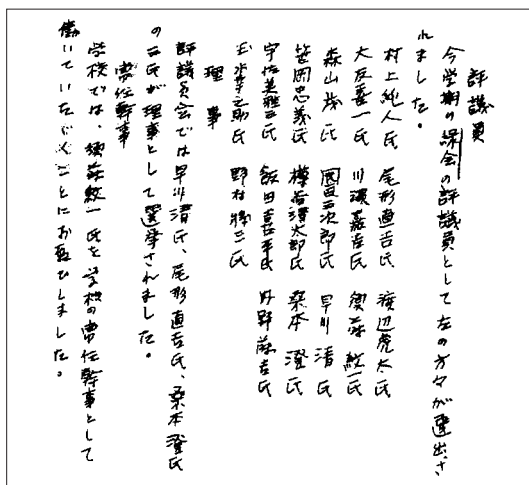 評議員
今学期の緑会の評議員として左の方々が選出さ
れました。
村上純人氏 尾形直吉氏 渡辺虎太氏
大友喜一氏 川瀬嘉吉氏 須藤紋一氏
森山茂氏 岡田三次郎氏 早川清氏
笹岡忠義氏 清太郎氏 桑本澄氏
宇佐美雅司氏 飯田喜平氏 外野藤吉氏
玉水幸之助氏 野村勝三氏
理事
評議員会では早川清氏、尾形直吉氏、桑本澄氏
の三氏が理事として選挙されました。
常任幹事
学校では、須藤紋一氏を学校の常任幹事として
働いていたゞくことにお喜びしました。